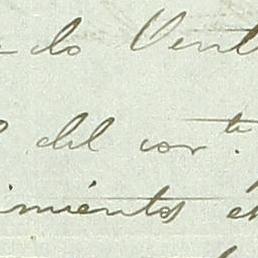 do Vent
del cor.te
imientos e